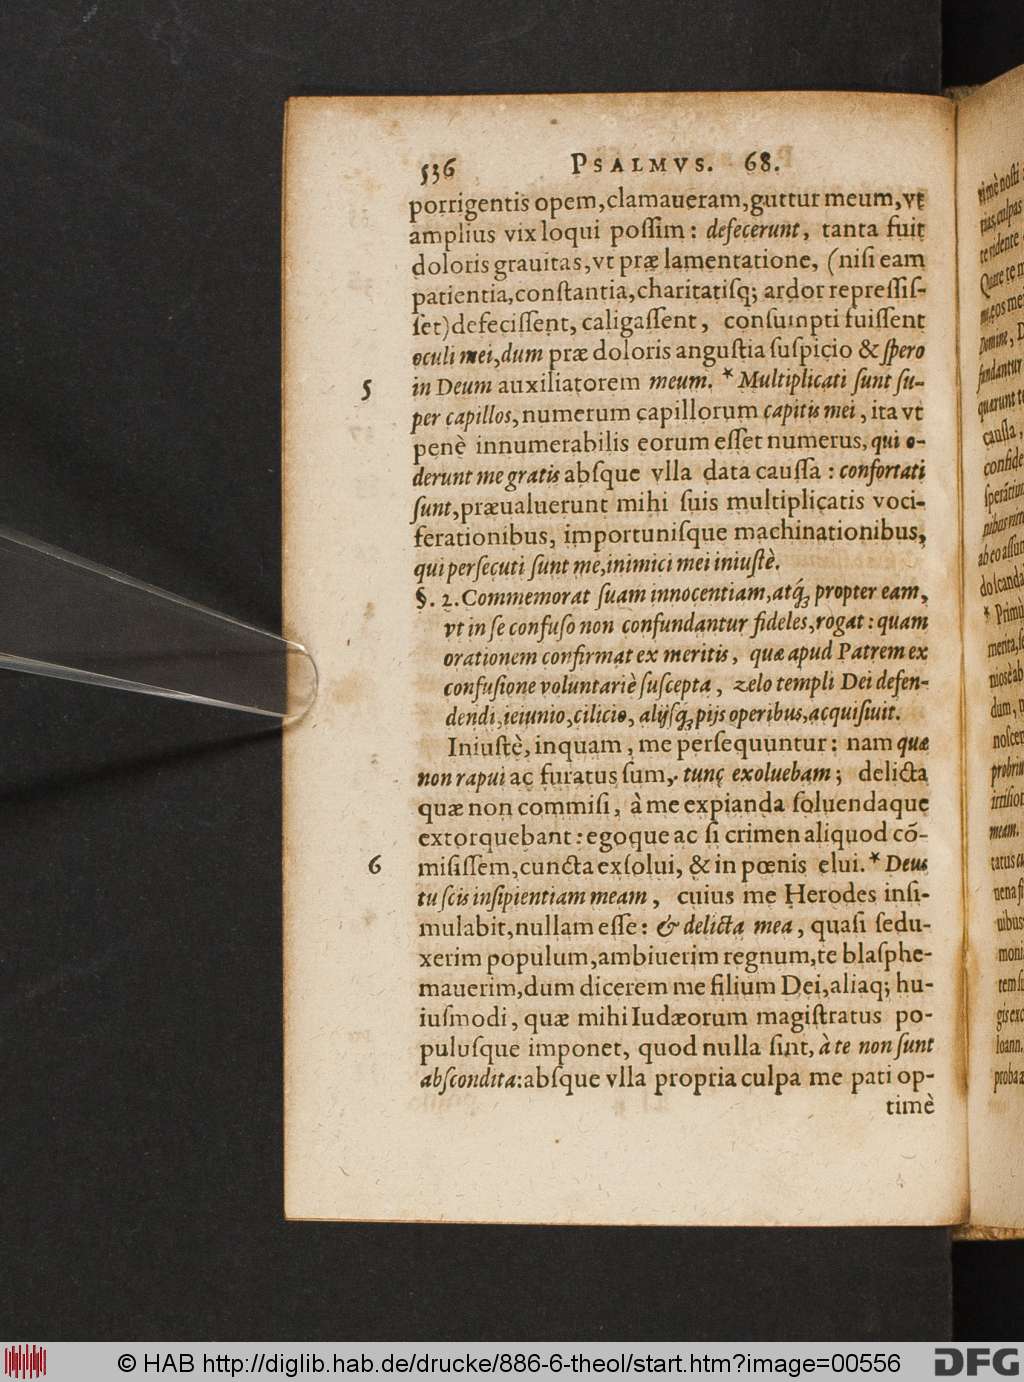 536 PSALMVS. 68.
porrigentis opem, clamaueram, guttur meum, vt
amplius vix loqui poſſim: defecerunt, tanta fuit
doloris grauitas, vt præ lamentatione, (niſi eam
patientia, conſtantia, charitatiſq; ardor repreſſiſ-
ſet) defeciſſent, caligaſſent, conſumpti fuiſſent
oculi mei, dum præ doloris anguſtia ſuſpicio & ſpero
5 in Deum auxiliatorem meum. * Multiplicati ſunt ſu-
per capillos, numerum capillorum capitis mei, ita vt
penè innumerabilis eorum eſſet numerus, qui o-
derunt me gratis abſque vlla data cauſſa: confortati
ſunt, præualuerunt mihi ſuis multiplicatis voci-
ferationibus, importuniſque machinationibus,
qui perſecuti ſunt me, inimici mei iniuſtè.
§. 2. Commemorat ſuam innocentiam, atq́; propter eam,
vt in ſe confuſo non confundantur fideles, rogat: quam
orationem confirmat ex meritis, quæ apud Patrem ex
confuſione voluntariè ſuſcepta, zelo templi Dei defen-
dendi, ieiunio, cilicio, alijſq́; pijs operibus, acquiſiuit.
Iniuſtè, inquam, me perſequuntur: nam quæ
non rapui ac furatus ſum, tunc exoluebam; delicta
quæ non commiſi, à me expianda ſoluendaque
extorquebant: egoque ac ſi crimen aliquod cõ-
6 miſiſſem, cuncta exſolui, & in pœnis elui. * Deus
tu ſcis inſipientiam meam, cuius me Herodes inſi-
mulabit, nullam eſſe: & delicta mea, quaſi ſedu-
xerim populum, ambiuerim regnum, te blaſphe-
mauerim, dum dicerem me filium Dei, aliaq; hu-
iuſmodi, quæ mihi Iudæorum magiſtratus po-
puluſque imponet, quod nulla ſint, à te non ſunt
abſcondita: abſque vlla propria culpa me pati op-
timè
© HAB http://diglib.hab.de/drucke/886-6-theol/start.htm?image=00556
DFG